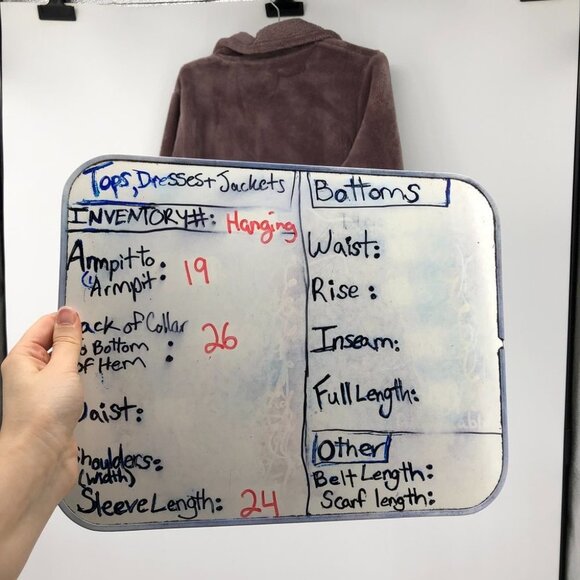 Tops, Dresses + Jackets
INVENTORY#: Hanging
Armpit to
Armpit: 19
ack of Collar
o Bottom : 26
of Hem
aist:
houlders:
(width)
Sleeve Length: 24
Bottoms
Waist:
Rise :
Inseam:
Full Length:
Other
Belt Length:
Scarf length: